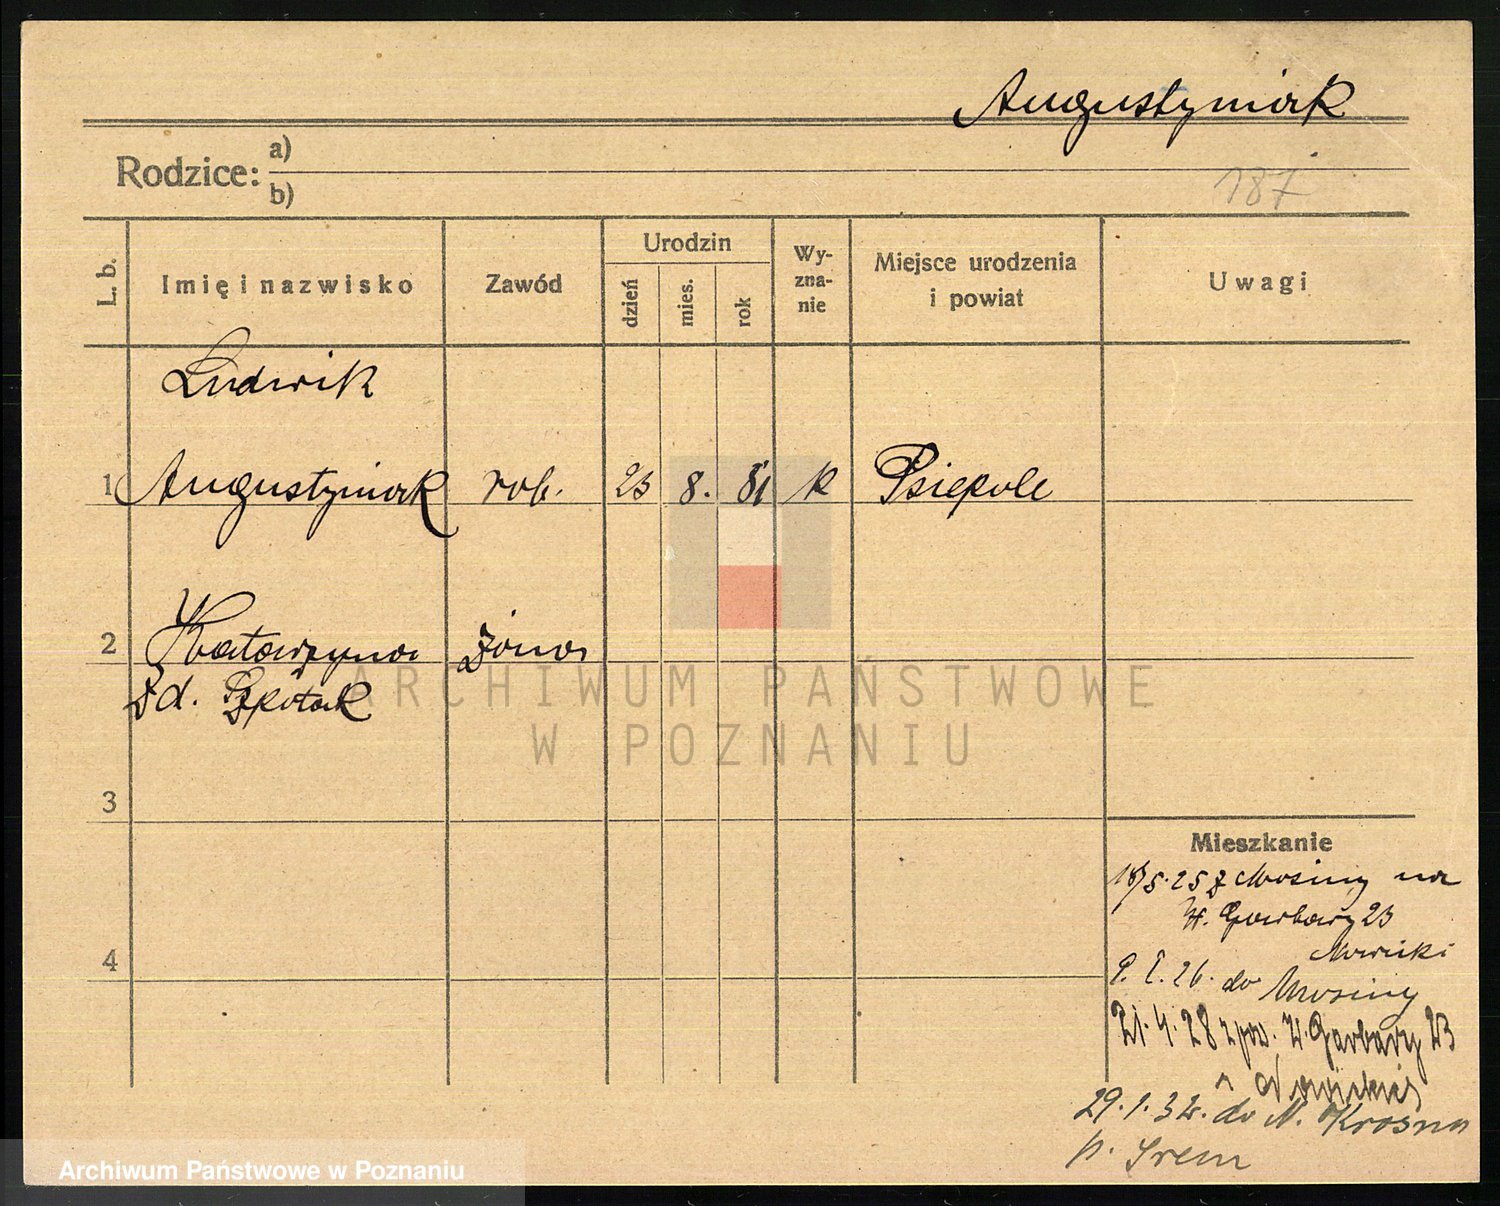 Augustyniak
Rodzice: a)
b)
187
L. b.
Imię i nazwisko
Zawód
Urodzin
dzień
mies.
rok
Wy-
zna-
nie
Miejsce urodzenia
i powiat
Uwagi
Ludwik
1 Augustyniak rob. 23 8. 81 k Psiepole
2 Katarzyna żona
zd. Szpotak
3
4
Mieszkanie
18/5.25 z Mosiny na
W. Garbary 23
Nowicki
9. 1. 26. do Mosiny
21. 4. 28 z pow. W. Garbary 23
29. 1. 32. do N. Krosna
p. Śrem
ARCHIWUM PAŃSTWOWE
W POZNANIU
Archiwum Państwowe w Poznaniu